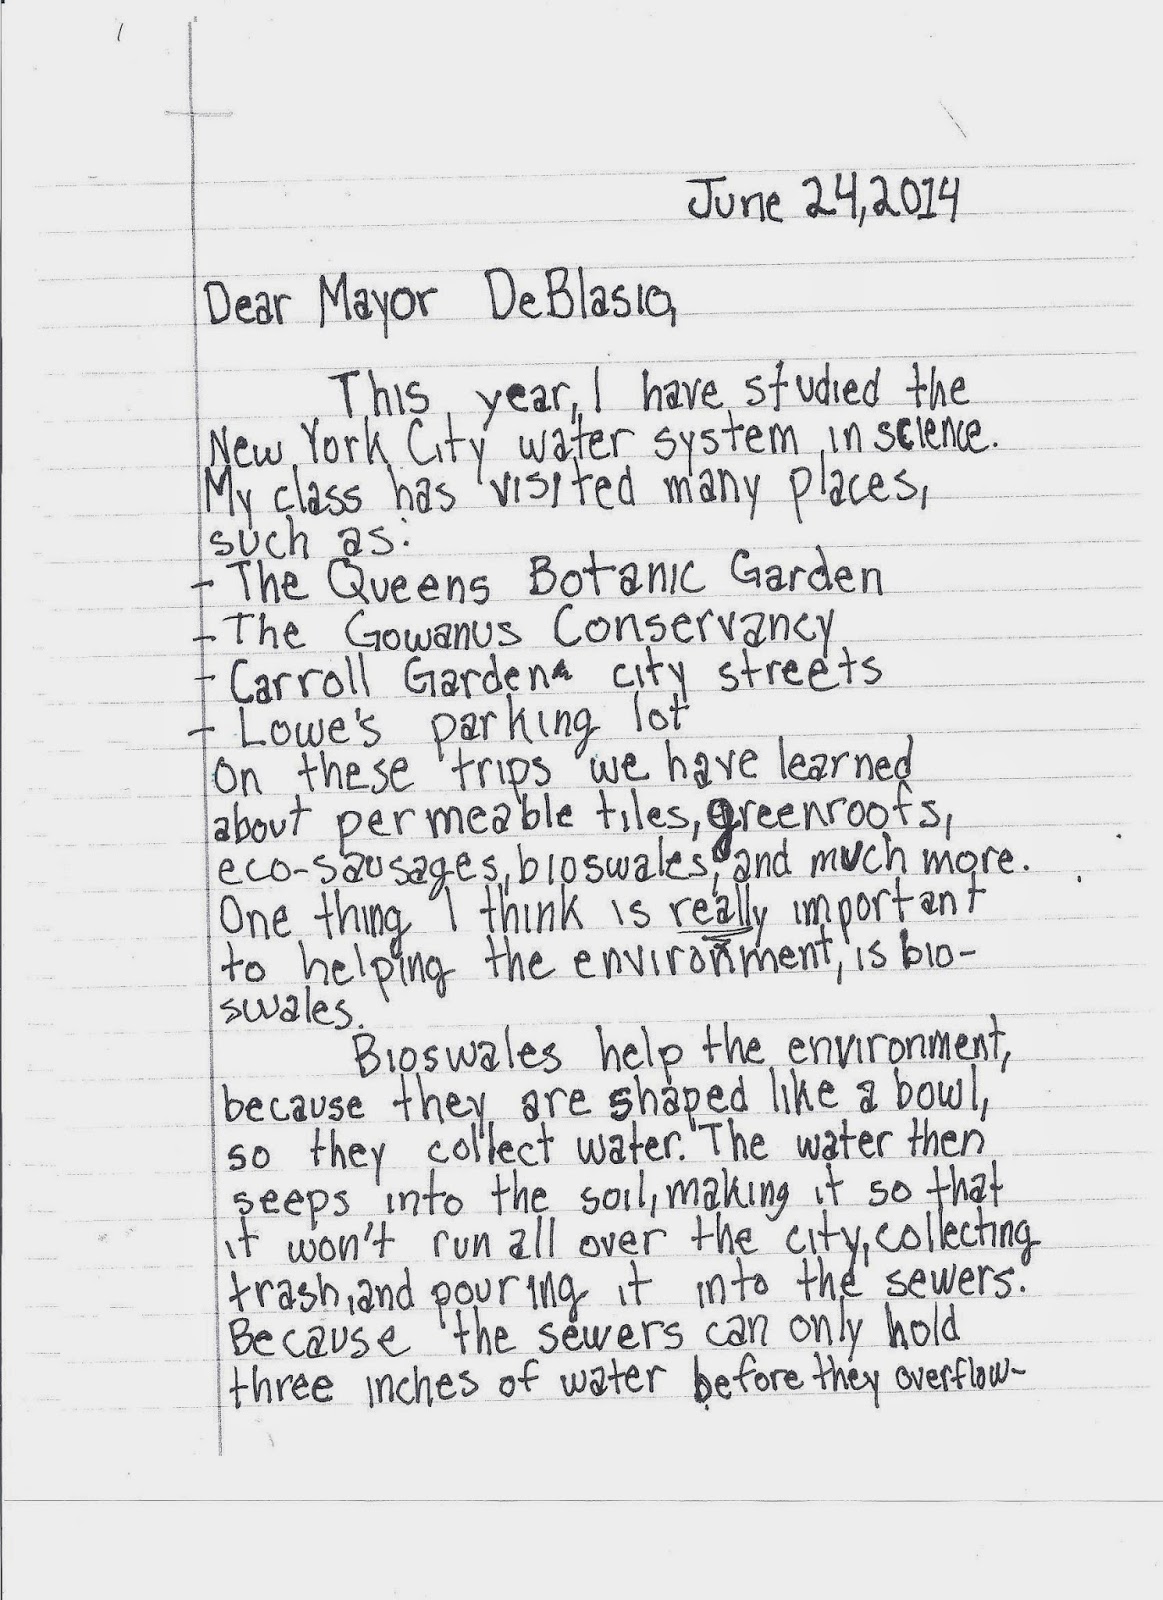 June 24, 2014
Dear Mayor DeBlasio,
This year, I have studied the
New York City water system in science.
My class has visited many places,
such as:
- The Queens Botanic Garden
- The Gowanus Conservancy
- Carroll Gardens city streets
- Lowe's parking lot
On these trips we have learned
about permeable tiles, greenroofs,
eco-sausages, bioswales, and much more.
One thing I think is really important
to helping the environment, is bio-
swales.
Bioswales help the environment,
because they are shaped like a bowl,
so they collect water. The water then
seeps into the soil, making it so that
it won't run all over the city, collecting
trash, and pouring it into the sewers.
Because the sewers can only hold
three inches of water before they overflow-